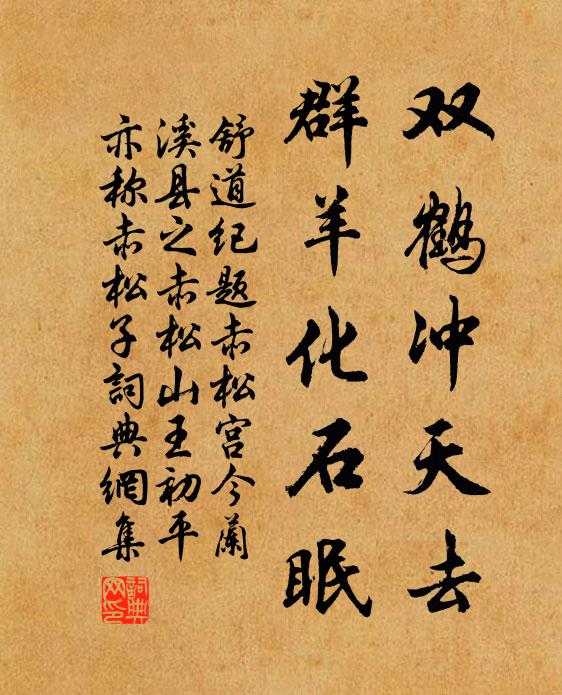 双鹤冲天去
群羊化石眠
舒道纪题赤松宫今兰
溪县之赤松山王初平
亦称赤松子詞典網集
詞典網印